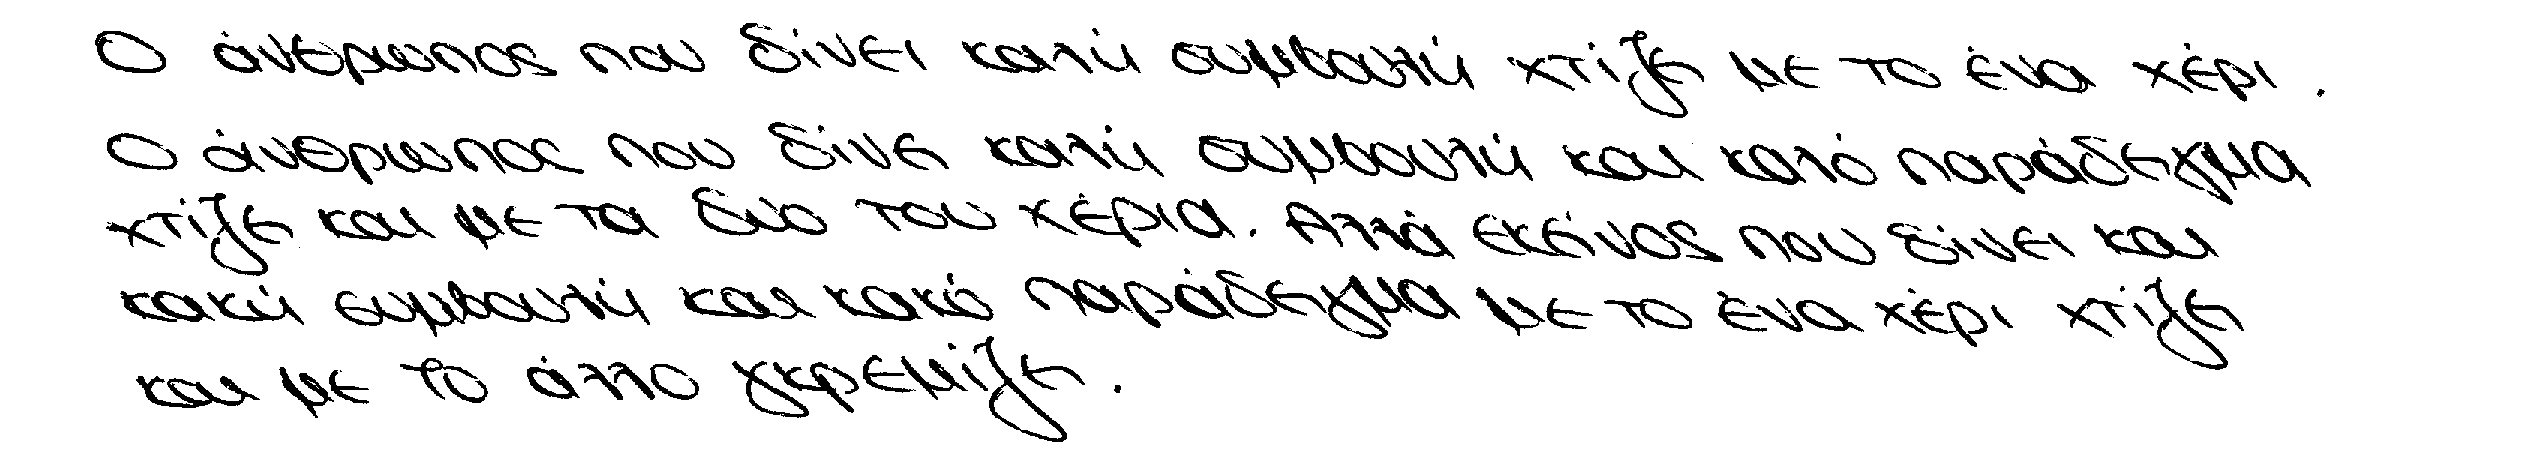 Ο άνθρωπος που δίνει καλή συμβουλή χτίζει με το ένα χέρι.
Ο άνθρωπος που δίνει καλή συμβουλή και καλό παράδειγμα
χτίζει και με τα δύο του χέρια. Αλλά εκείνος που δίνει και
κακή συμβουλή και κακό παράδειγμα με το ένα χέρι χτίζει
και με το άλλο γκρεμίζει.